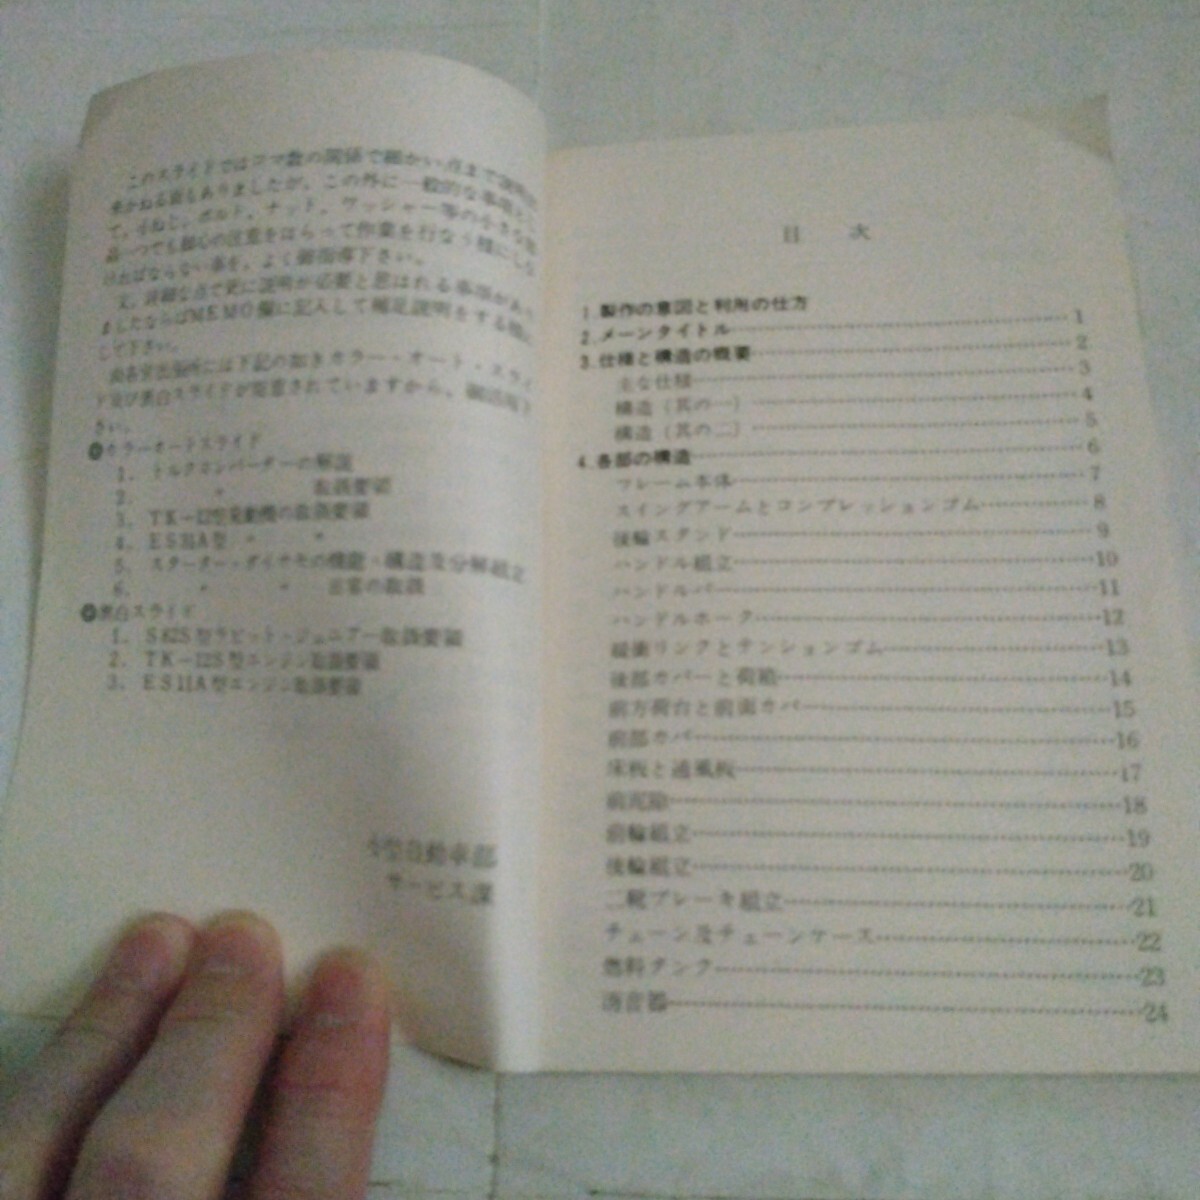 このスライドではコマ数の関係で細かい点まで説明
かねる面もありましたが、この外に一般的な事項とし
て、小ねじ、ボルト、ナット、ワッシャー等の小さな部
品一つでも細心の注意をはらって作業を行なう様にしな
ければならない事を、よく御指導下さい。
又、詳細な点で更に説明が必要と思はれる事項があり
ましたならばMEMO欄に記入して補足説明をする様に
して下さい。
尚各出張所には下記の如きカラー・オート・スライ
ド及び黒白スライドが用意されていますから、御活用下
さい。
カラーオートスライド
1. トルクコンバーターの解説
2. 〃 取扱要領
3. TK-12型発動機の取扱要領
4. ES11A型 〃 〃
5. スターター・ダイナモの機能・構造及分解組立
6. 〃 〃 日常の取扱
黒白スライド
1. S82S型ラビット・ジュニアー取扱要領
2. TK-12S型エンジン取扱要領
3. ES11A型エンジン取扱要領
小型自動車部
サービス課
目 次
1. 製作の意図と利用の仕方 1
2. メーンタイトル 2
3. 仕様と構造の概要 3
主な仕様 4
構造（其の一） 5
構造（其の二） 6
4. 各部の構造 7
フレーム本体 8
スイングアームとコンプレッションゴム 9
後輪スタンド 10
ハンドル組立 11
ハンドルバー 12
ハンドルホーク 13
緩衝リンクとテンションゴム 14
後部カバーと荷箱 15
前方荷台と前面カバー 16
前部カバー 17
床板と通風板 18
前泥除 19
前輪組立 20
後輪組立 21
二靴ブレーキ組立 22
チェーン及チェーンケース 23
燃料タンク 24
消音器